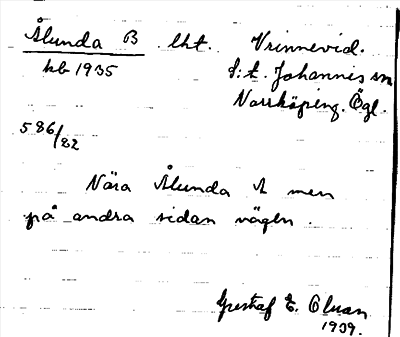 Ålunda B lht. Vrinnevid.
kb 1935 S:t. Johannis sn
Norrköping. Ögl.
586/22
Nära Ålunda A men
på andra sidan vägen.
Gustaf E. Olsson
1939.